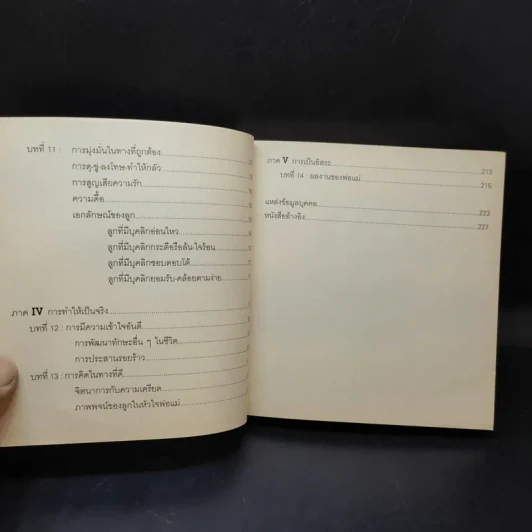 บทที่ 11 : การมุ่งมั่นในทางที่ถูกต้อง
การดุ-ขู่-ลงโทษ-ทำให้กลัว
การสูญเสียความรัก
ความดื้อ
เอกลักษณ์ของลูก
ลูกที่มีบุคลิกอ่อนไหว
ลูกที่มีบุคลิกกระตือรือล้น-ใจร้อน
ลูกที่มีบุคลิกชอบตอบโต้
ลูกที่มีบุคลิกยอมรับ-คล้อยตามง่าย
ภาค IV การทำให้เป็นจริง
บทที่ 12 : การมีความเข้าใจอันดี
การพัฒนาทักษะอื่น ๆ ในชีวิต
การประสานรอยร้าว
บทที่ 13 : การคิดในทางที่ดี
จิตนาการกับความเครียด
ภาพพจน์ของลูกในหัวใจพ่อแม่
ภาค V การเป็นอิสระ 213
บทที่ 14 : ผลงานของพ่อแม่ 215
แหล่งข้อมูลบุคคล 223
หนังสืออ้างอิง 227